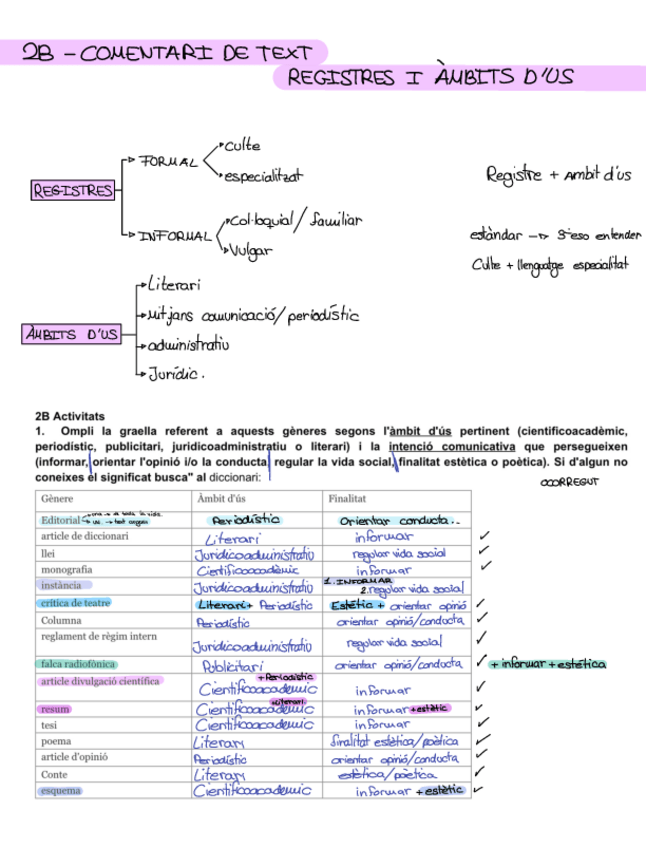 2B - COMENTARI DE TEXT
REGISTRES I ÀMBITS D'US
REGISTRES
FORMAL
culte
especialitzat
INFORMAL
Col·loquial / familiar
Vulgar
Registre + Ambit d'us
estàndar → 3ºeso entender
Culte + llenguatge especialitat
ÀMBITS D'US
Literari
Mitjans comunicació/periodístic
administratiu
Jurídic.
2B Activitats
1. Ompli la graella referent a aquests gèneres segons l'àmbit d'ús pertinent (cientificoacadèmic,
periodístic, publicitari, juridicoadministratiu o literari) i la intenció comunicativa que persegueixen
(informar, orientar l'opinió i/o la conducta, regular la vida social, finalitat estètica o poètica). Si d'algun no
coneixes el significat busca" al diccionari:
CORREGUT
Gènere Àmbit d'ús Finalitat
Editorial Periodístic Orientar conducta..
article de diccionari Literari informar ✓
llei Juridicoadministratiu regular vida social ✓
monografia Cientificoacadèmic informar ✓
instància Juridicoadministratiu 1. INFORMAR 2. regular vida social
crítica de teatre Literari + Periodístic Estètic + orientar opinió ✓
Columna Periodístic orientar opinió/conducta ✓
reglament de règim intern Juridicoadministratiu regular vida social ✓
falca radiofònica Publicitari orientar opinió/conducta ✓ + informar + estètica
article divulgació científica Cientificoacademic + Periodístic informar ✓
resum Cientificoacademic +Literari informar + estètic ✓
tesi Cientificoacademic informar ✓
poema Literary finalitat estètica/poètica ✓
article d'opinió Periodístic orientar opinió/conducta ✓
Conte Literary estètica/poètica ✓
esquema Cientificoacademic informar + estètic ✓